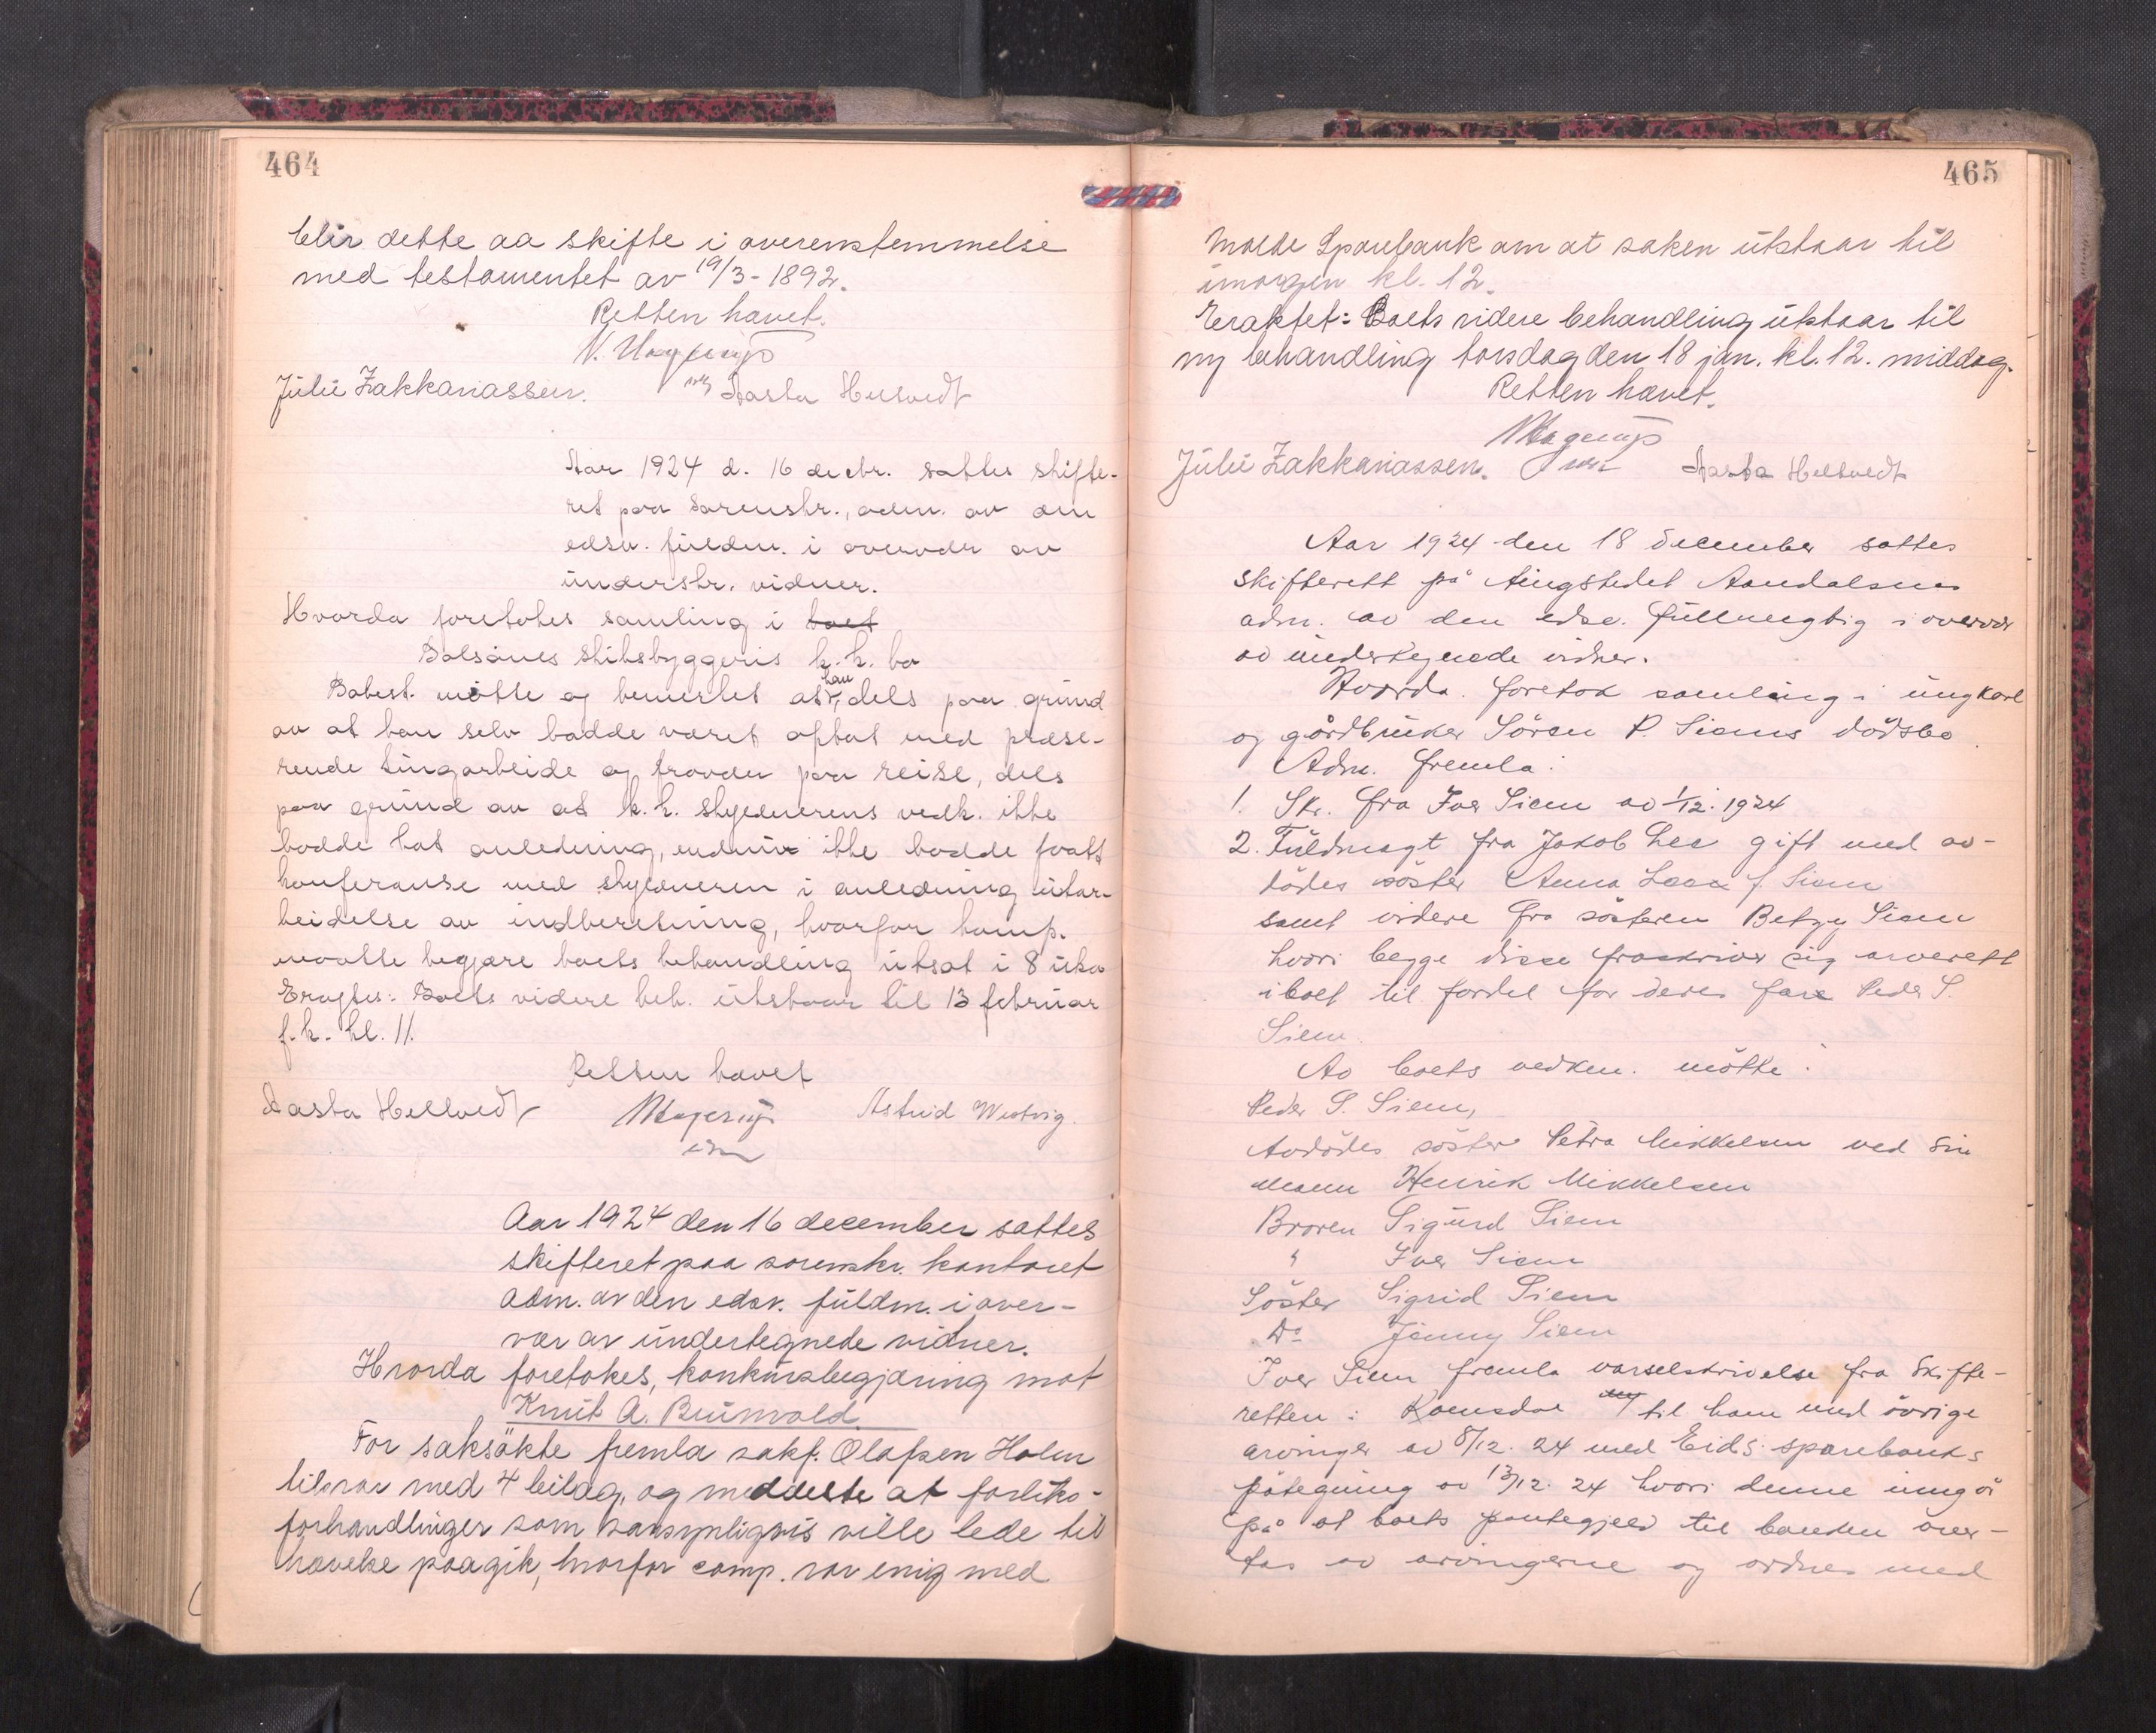 464
blir dette aa skifte i overenstemmelse
med testamentet av 19/3-1892.
Retten hævet.
N. Hagerup
Julie Zakkariassen. Aasta Helsvedt
Aar 1924 d. 16 decbr. sattes skifte-
ret paa sorenskr., adm. av den
edsv. fuldm. i overvær av
underskr. vidner.
Hvorda foretokes samling i boet
Bolsønes Skibsbyggeris k.k. bo
Bobest. møtte og bemerket at han, dels paa grund
av at han selv hadde været optat med presse-
rende tingarbeide og fravær paa reise, dels
paa grund av at k.k. skyldnerens vedk. ikke
hadde hat anledning, endnu ikke hadde faatt
konferanse med skyldneren i anledning utar-
beidelse av indberetning, hvorfor komp.
maatte begjære boets behandling utsat i 8 uker
Eragtes: Boets videre beh. utstaar til 13 februar
f.k. kl. 11.
Retten hævet
Aasta Helsvedt N Hagerup Astrid Westvig.
Aar 1924 den 16 december sattes
skifteret paa sorenskr. kontoret
adm. av den edsv. fuldm. i over-
vær av undertegnede vidner.
Hvorda foretokes, konkursbegjæring mot
Knut A. Brunvold
For saksøkte fremla sakf. Olafsen Holm
tilsvar med 4 bilag, og meddelte at forliks-
forhandlinger som sansynligvis ville lede til
hævelse paagik, hvorfor comp. var enig med
465
Molde Sparebank om at saken utstaar til
imorgen kl. 12.
Eraktet: Boets videre behandling utstaar til
ny behandling torsdag den 18 jan. kl. 12. middag.
Retten hævet.
N Hagerup
Julie Zakkariassen. Aasta Helsvedt
Aar 1924 den 18 december sattes
skifterett på tingstedet Aandalsnes
adm. av den edsv. fullmegtig i overvær
av undertegnede vidner.
Hvorda. foretok samling i ungkarl
og gårdbruker Sören P. Siems dödsbo.
Adm. fremla:
1. Skr. fra Iver Siem av 1/12. 1924
2. Fuldmagt fra Jakob Lee gift med av-
dödes söster Anna f. Siem
samt videre fra sösteren Betzy Siem
hvori begge disse fraskriver sig arverett
i boet til fordel for deres far Peder S.
Siem.
Av boets vedkm. mötte:
Peder S. Siem,
Avdödes söster Petra Mikkelsen ved sin
mann Henrik Mikkelsen
Broren Sigurd Siem
" Iver Siem
Söster Sigrid Siem
Do Jenny Siem
Iver Siem fremla varselskrivelse fra skifte-
retten i Romsdal til ham med övrige
arvinger av 8/12. 24 med Eids sparebanks
påtegning av 13/12. 24 hvori denne inngår
på at boets pantegjeld til banken över-
tas av arvingerne og ordnes med